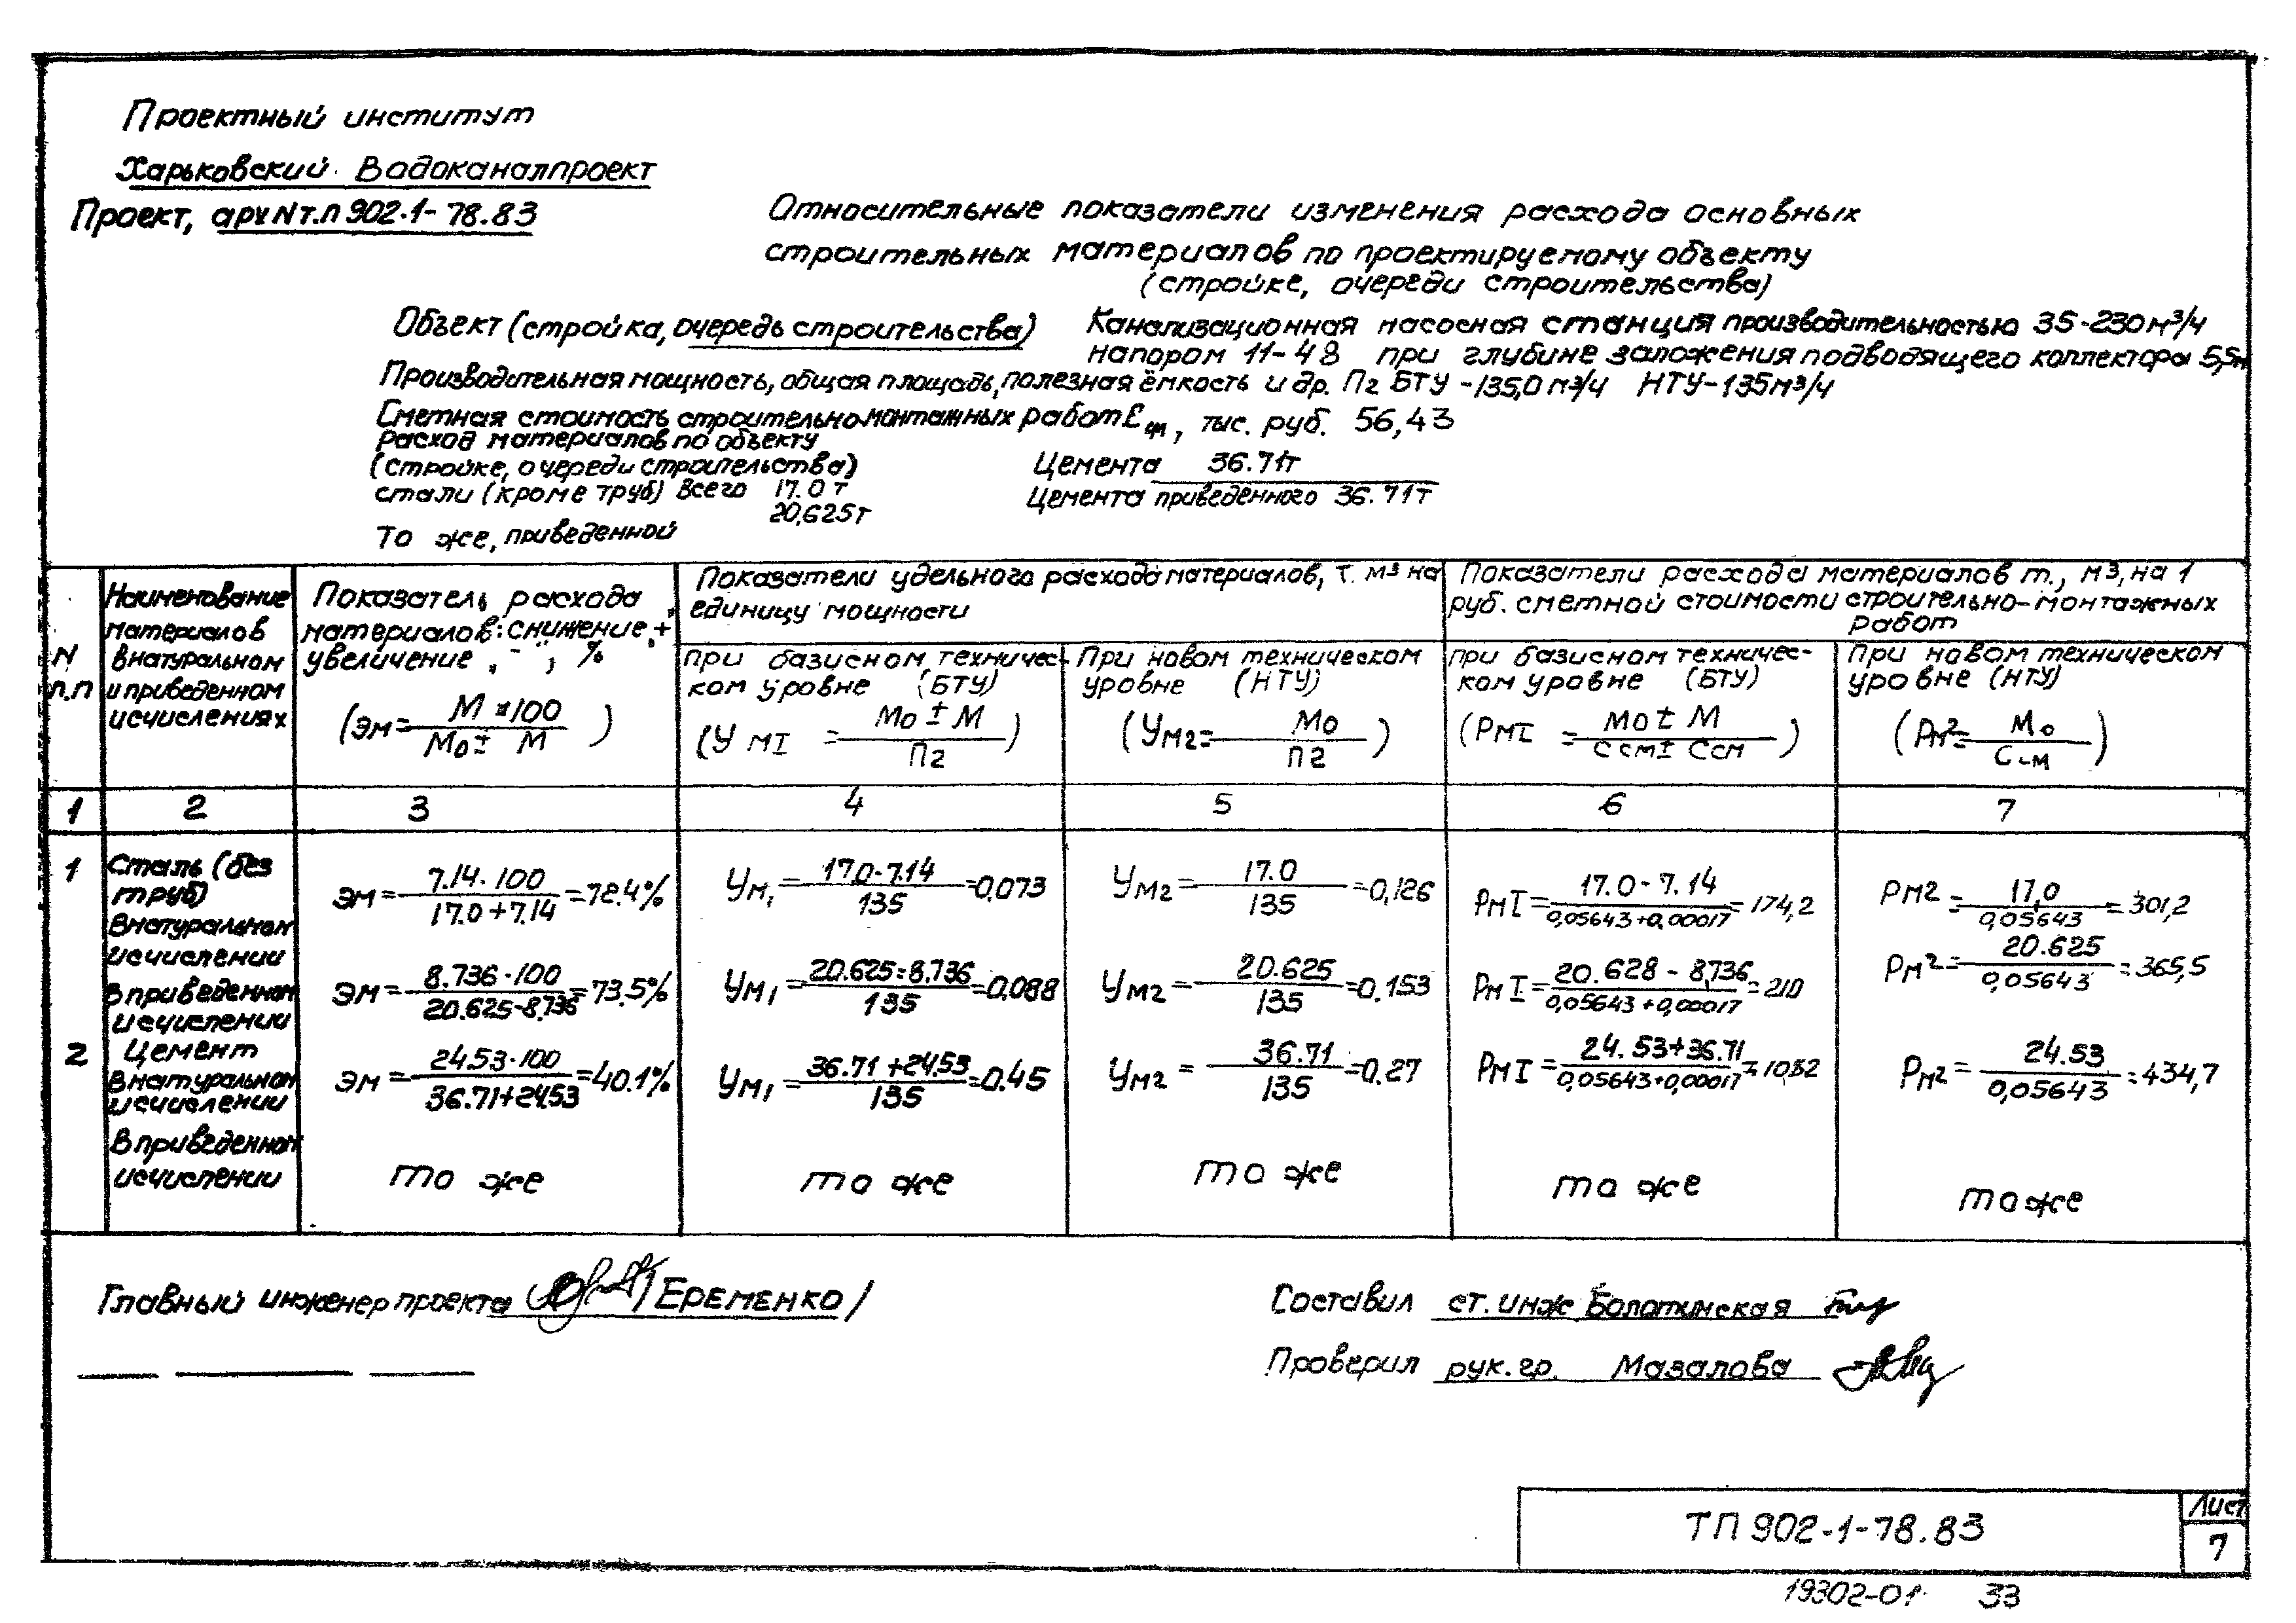 Проектный институт
Харьковский Водоканалпроект
Проект, арх N т.п 902.1-78.83
Относительные показатели изменения расхода основных
строительных материалов по проектируемому объекту
(стройке, очереди строительства)
Объект (стройка, очередь строительства) Канализационная насосная станция производительностью 35-230 м³/ч
напором 11-48 при глубине заложения подводящего коллектора 5,5м
Производительная мощность, общая площадь, полезная ёмкость и др. Пг БТУ-135,0 м³/ч НТУ-135 м³/ч
Сметная стоимость строительно-монтажных работ Ссм, тыс. руб. 56,43
Расход материалов по объекту
(стройке, очереди строительства) Цемента 36.71т
стали (кроме труб) всего 17.0 т Цемента приведенного 36.71т
20,625т
То же, приведенной
N п.п
Наименование материалов в натуральном и приведенном исчислениях
Показатель расхода материалов: снижение „+", увеличение „-", %
(Эм= М×100 / Мо± М)
Показатели удельного расхода материалов, т. м³ на единицу мощности
при базисном техническом уровне (БТУ)
(У мI = Мо ± М / Пг)
При новом техническом уровне (НТУ)
(Ум2= Мо / Пг)
Показатели расхода материалов т., м³, на 1 руб. сметной стоимости строительно-монтажных работ
при базисном техническом уровне (БТУ)
(РмI = Мо ± М / Ссм± Ссм)
При новом техническом уровне (НТУ)
(Рм2= Мо / Ссм)
1 2 3 4 5 6 7
1 Сталь (без труб)
В натуральном исчислении
Эм= 7.14·100 / 17.0+7.14 =72.4%
Ум₁= 17.0-7.14 / 135 =0,073
Ум2= 17.0 / 135 =0,126
РмI= 17.0-7.14 / 0,05643+0,00017 =174,2
Рм2= 17,0 / 0,05643 =301,2
В приведенном исчислении
Эм= 8.736·100 / 20.625-8,736 =73.5%
Ум₁= 20.625=8,736 / 135 =0,088
Ум2= 20.625 / 135 =0.153
РмI= 20.628-8,736 / 0,05643+0,00017 =210
Рм2= 20.625 / 0,05643 =365,5
2 Цемент
В натуральном исчислении
Эм= 24.53·100 / 36.71+24.53 =40.1%
Ум₁= 36.71+24.53 / 135 =0.45
Ум2= 36.71 / 135 =0.27
РмI= 24.53+36.71 / 0,05643+0,00017 =1082
Рм2= 24.53 / 0,05643 =434,7
В приведенном исчислении
то же то же то же то же то же
Главный инженер проекта /Еременко/
Составил ст. инж Болотинская
Проверил рук. гр. Мазалова
ТП 902-1-78.83
Лист
7
19302-01 33